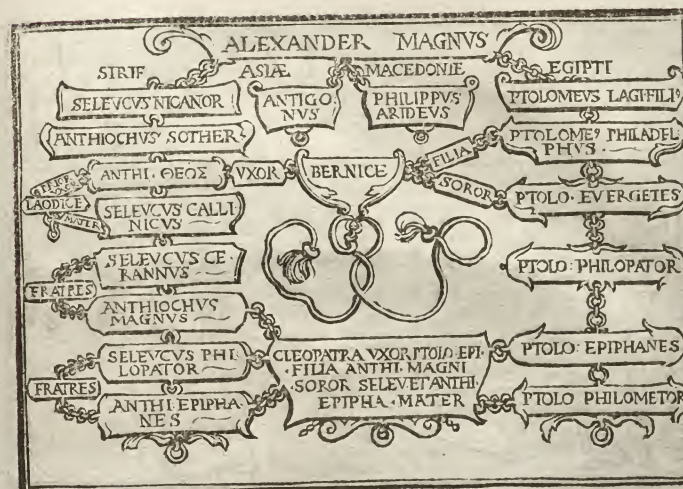 ALEXANDER MAGNVS
ASIÆ MACEDONIE EGIPTI
SELEVCVS NICANOR
ANTIGO
NVS
PHILIPPVS
ARIDEVS
PTOLOMEVS LAGI FILI9
ANTHIOCHVS SOTHER
PTOLOME9 PHILADEL
PHVS
ANTHI · ΘΕΟΣ
VXOR
BERNICE
FILIA
SOROR
LAODICE
MATER
SELEVCVS CALLI
NICVS
PTOLO · EVERGETES
SELEVCVS CE ·
RANNVS
FRATRES
ANTHIOCHVS
MAGNVS
PTOLO : PHILOPATOR
SELEVCVS PHI
LOPATOR
FRATRES
ANTHI · EPIPHA
NES
CLEOPATRA VXOR PTOLO EPI ·
· FILIA ANTHI · MAGNI
· SOROR SELEV · ET ANTHI
EPIPHA · MATER
PTOLO : EPIPHANES
PTOLO PHILOMETOR